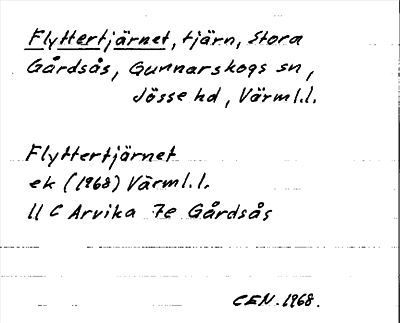 Flyttertjärnet, tjärn, Stora
Gårdsås, Gunnarskogs sn,
Jösse hd, Värml.l.
Flyttertjärnet
ek (1968) Värml.l.
11 C Arvika 7e Gårdsås
CEN. 1968.